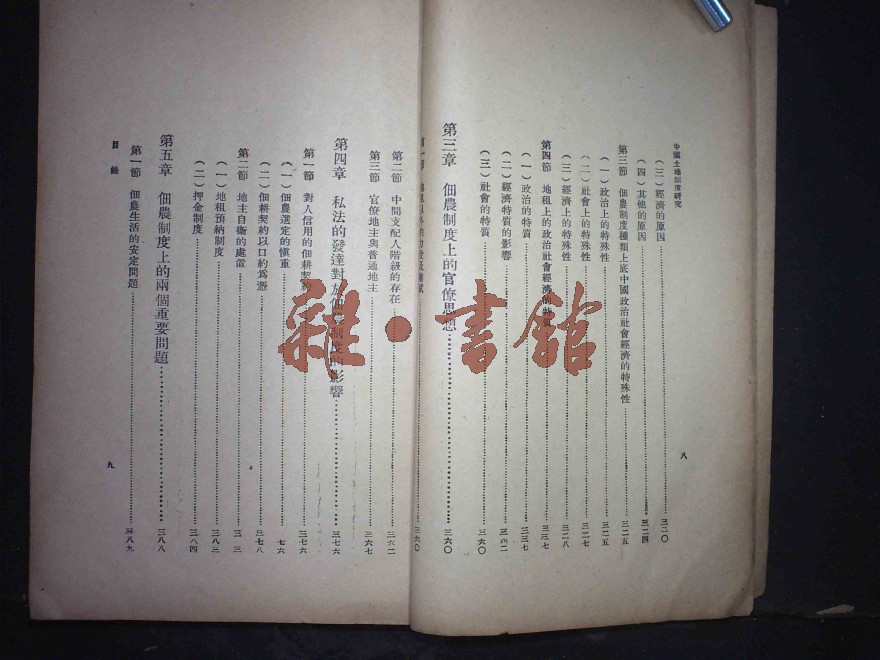 中國土地制度研究
八
（三）經濟的原因……三二〇
（四）其他的原因……三二四
第三節　佃農制度種類上底中國政治社會經濟的特殊性……三二五
（一）政治上的特殊性……三二五
（二）社會上的特殊性……三二七
（三）經濟上的特殊性……三二八
第四節　地租上的政治社會經濟的特質……三三七
（一）政治的特質……三三七
（二）經濟特質的影響……三四二
（三）社會的特質……三六〇
第三章　佃農制度上的官僚思想……三六〇
第一節……三六〇
第二節　中間支配人階級的存在……三六二
第三節　官僚地主與普通地主……三六七
第四章　私法的發達對於佃農制度的影響……三七六
第一節　對人信用的佃耕契約……三七六
（一）佃農選定的慎重……七六
（二）佃耕契約以口約爲憑……三七八
第二節　地主自衛的處置……三　三
（一）地租預納制度……三八三
（二）押金制度……三八四
第五章　佃農制度上的兩個重要問題……三八八
第一節　佃農生活的安定問題……三八九
目錄
九
雜·書館